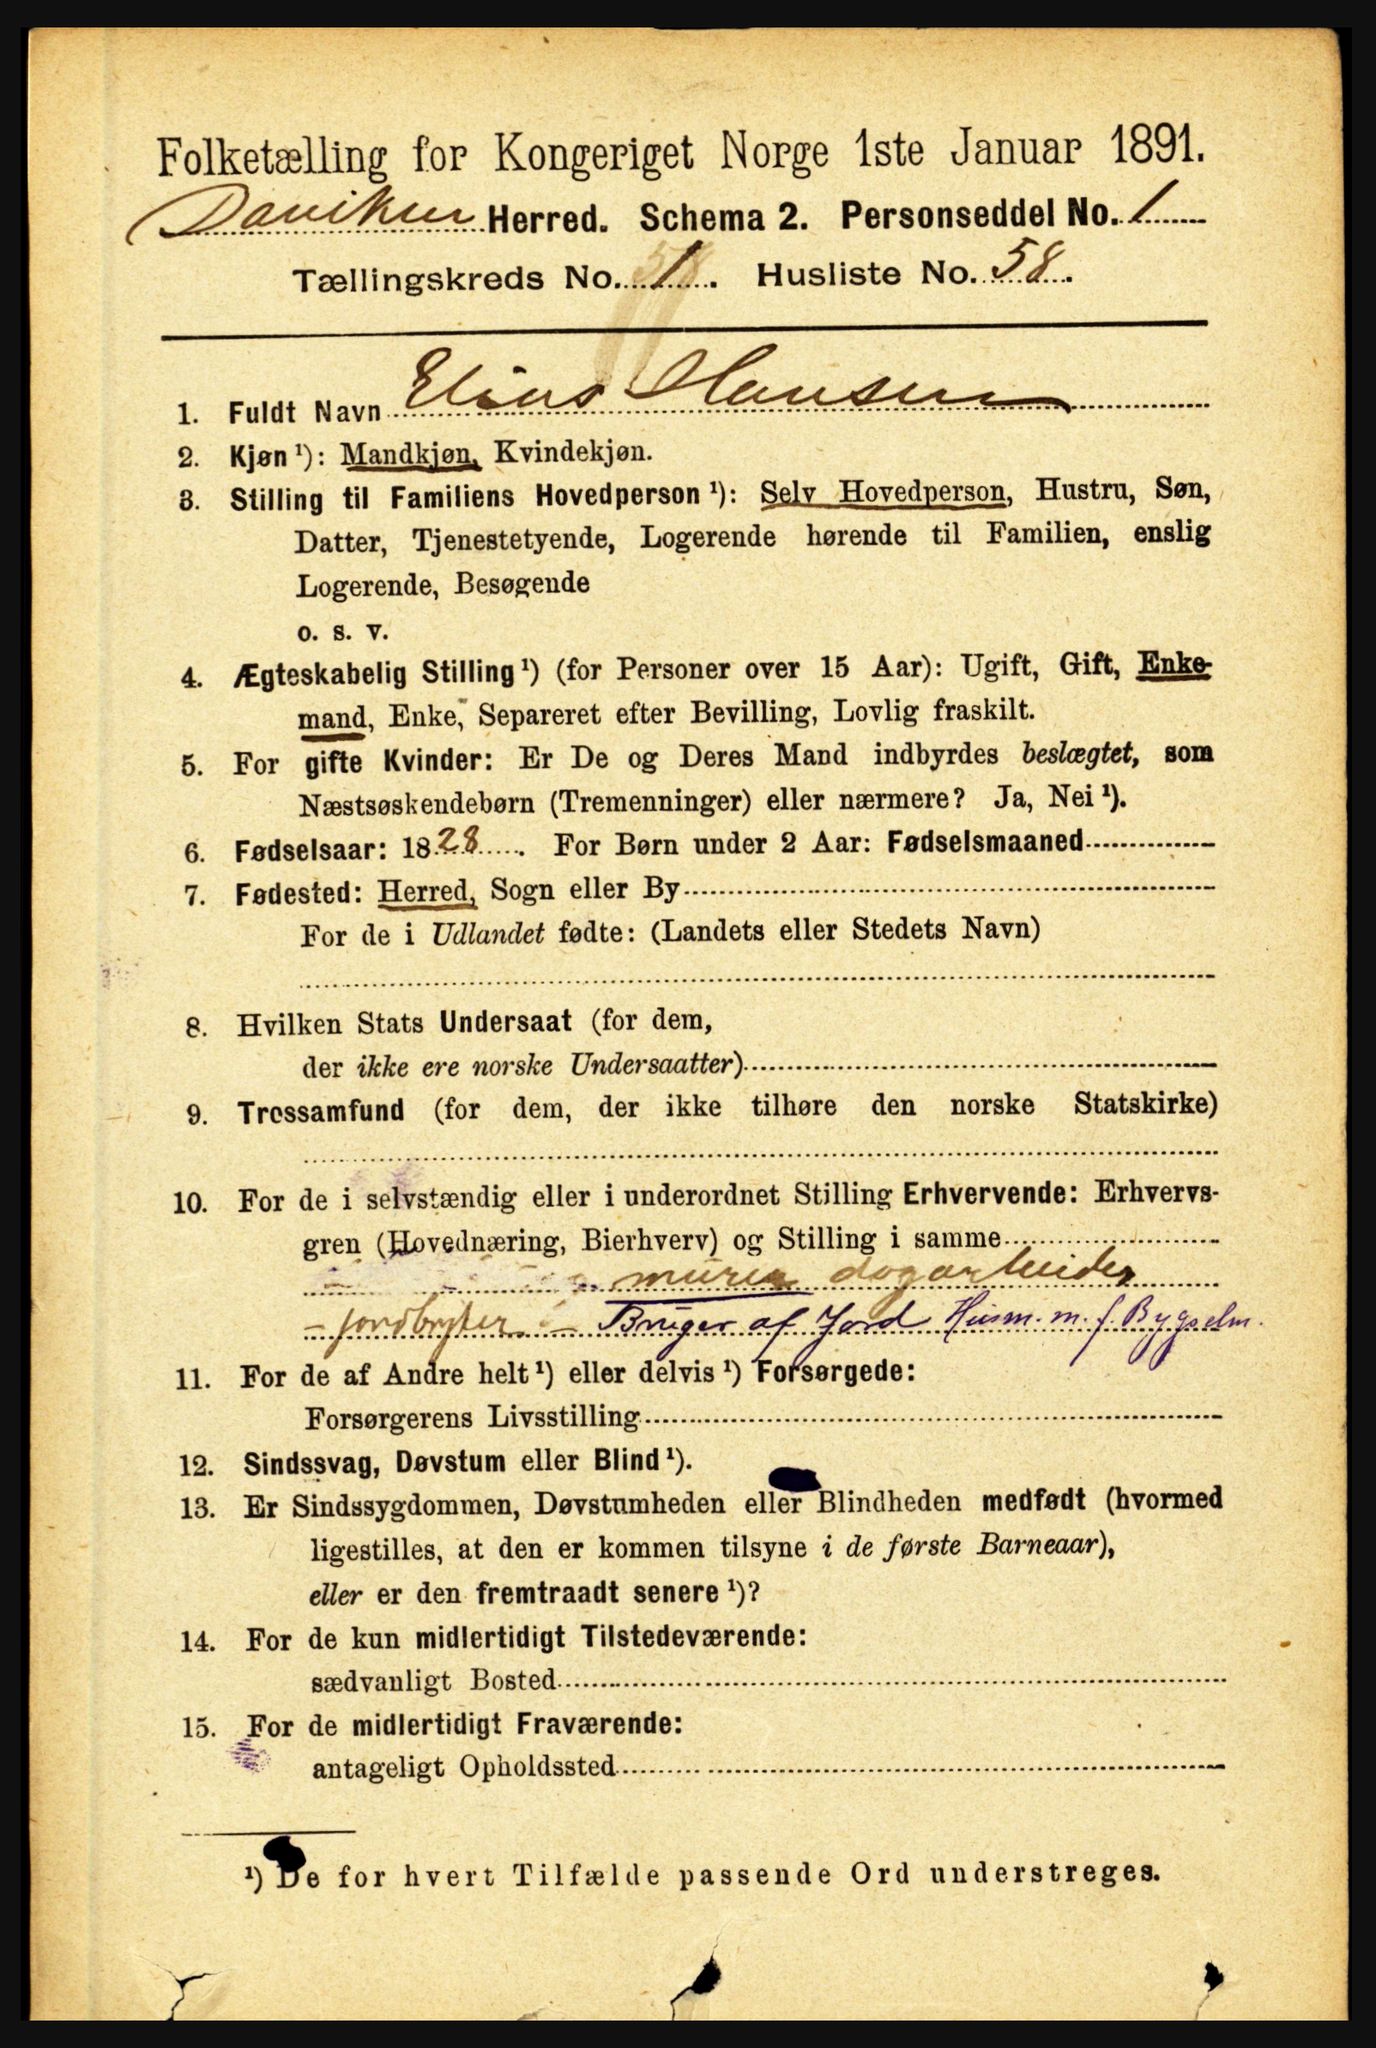 Folketælling for Kongeriget Norge 1ste Januar 1891.
Daviken Herred. Schema 2. Personseddel No. 1
Tællingskreds No. 1. Husliste No. 58.
1. Fuldt Navn Elias Hansen
2. Kjøn¹): Mandkjøn, Kvindekjøn.
3. Stilling til Familiens Hovedperson¹): Selv Hovedperson, Hustru, Søn,
Datter, Tjenestetyende, Logerende hørende til Familien, enslig
Logerende, Besøgende
o. s. v.
4. Ægteskabelig Stilling¹) (for Personer over 15 Aar): Ugift, Gift, Enke-
mand, Enke, Separeret efter Bevilling, Lovlig fraskilt.
5. For gifte Kvinder: Er De og Deres Mand indbyrdes beslægtet, som
Næstsøskendebørn (Tremenninger) eller nærmere? Ja, Nei¹).
6. Fødselsaar: 1828. For Børn under 2 Aar: Fødselsmaaned
7. Fødested: Herred, Sogn eller By
For de i Udlandet fødte: (Landets eller Stedets Navn)
8. Hvilken Stats Undersaat (for dem,
der ikke ere norske Undersaatter)
9. Trossamfund (for dem, der ikke tilhøre den norske Statskirke)
10. For de i selvstændig eller i underordnet Stilling Erhvervende: Erhvervs-
gren (Hovednæring, Bierhverv) og Stilling i samme
murer dagarbeider
- jordbryter - Bruger af Jord Husm. m. f. Bygselm.
11. For de af Andre helt¹) eller delvis¹) Forsørgede:
Forsørgerens Livsstilling
12. Sindssvag, Døvstum eller Blind¹).
13. Er Sindssygdommen, Døvstumheden eller Blindheden medfødt (hvormed
ligestilles, at den er kommen tilsyne i de første Barneaar),
eller er den fremtraadt senere¹)?
14. For de kun midlertidigt Tilstedeværende:
sædvanligt Bosted
15. For de midlertidigt Fraværende:
antageligt Opholdssted
¹) De for hvert Tilfælde passende Ord understreges.